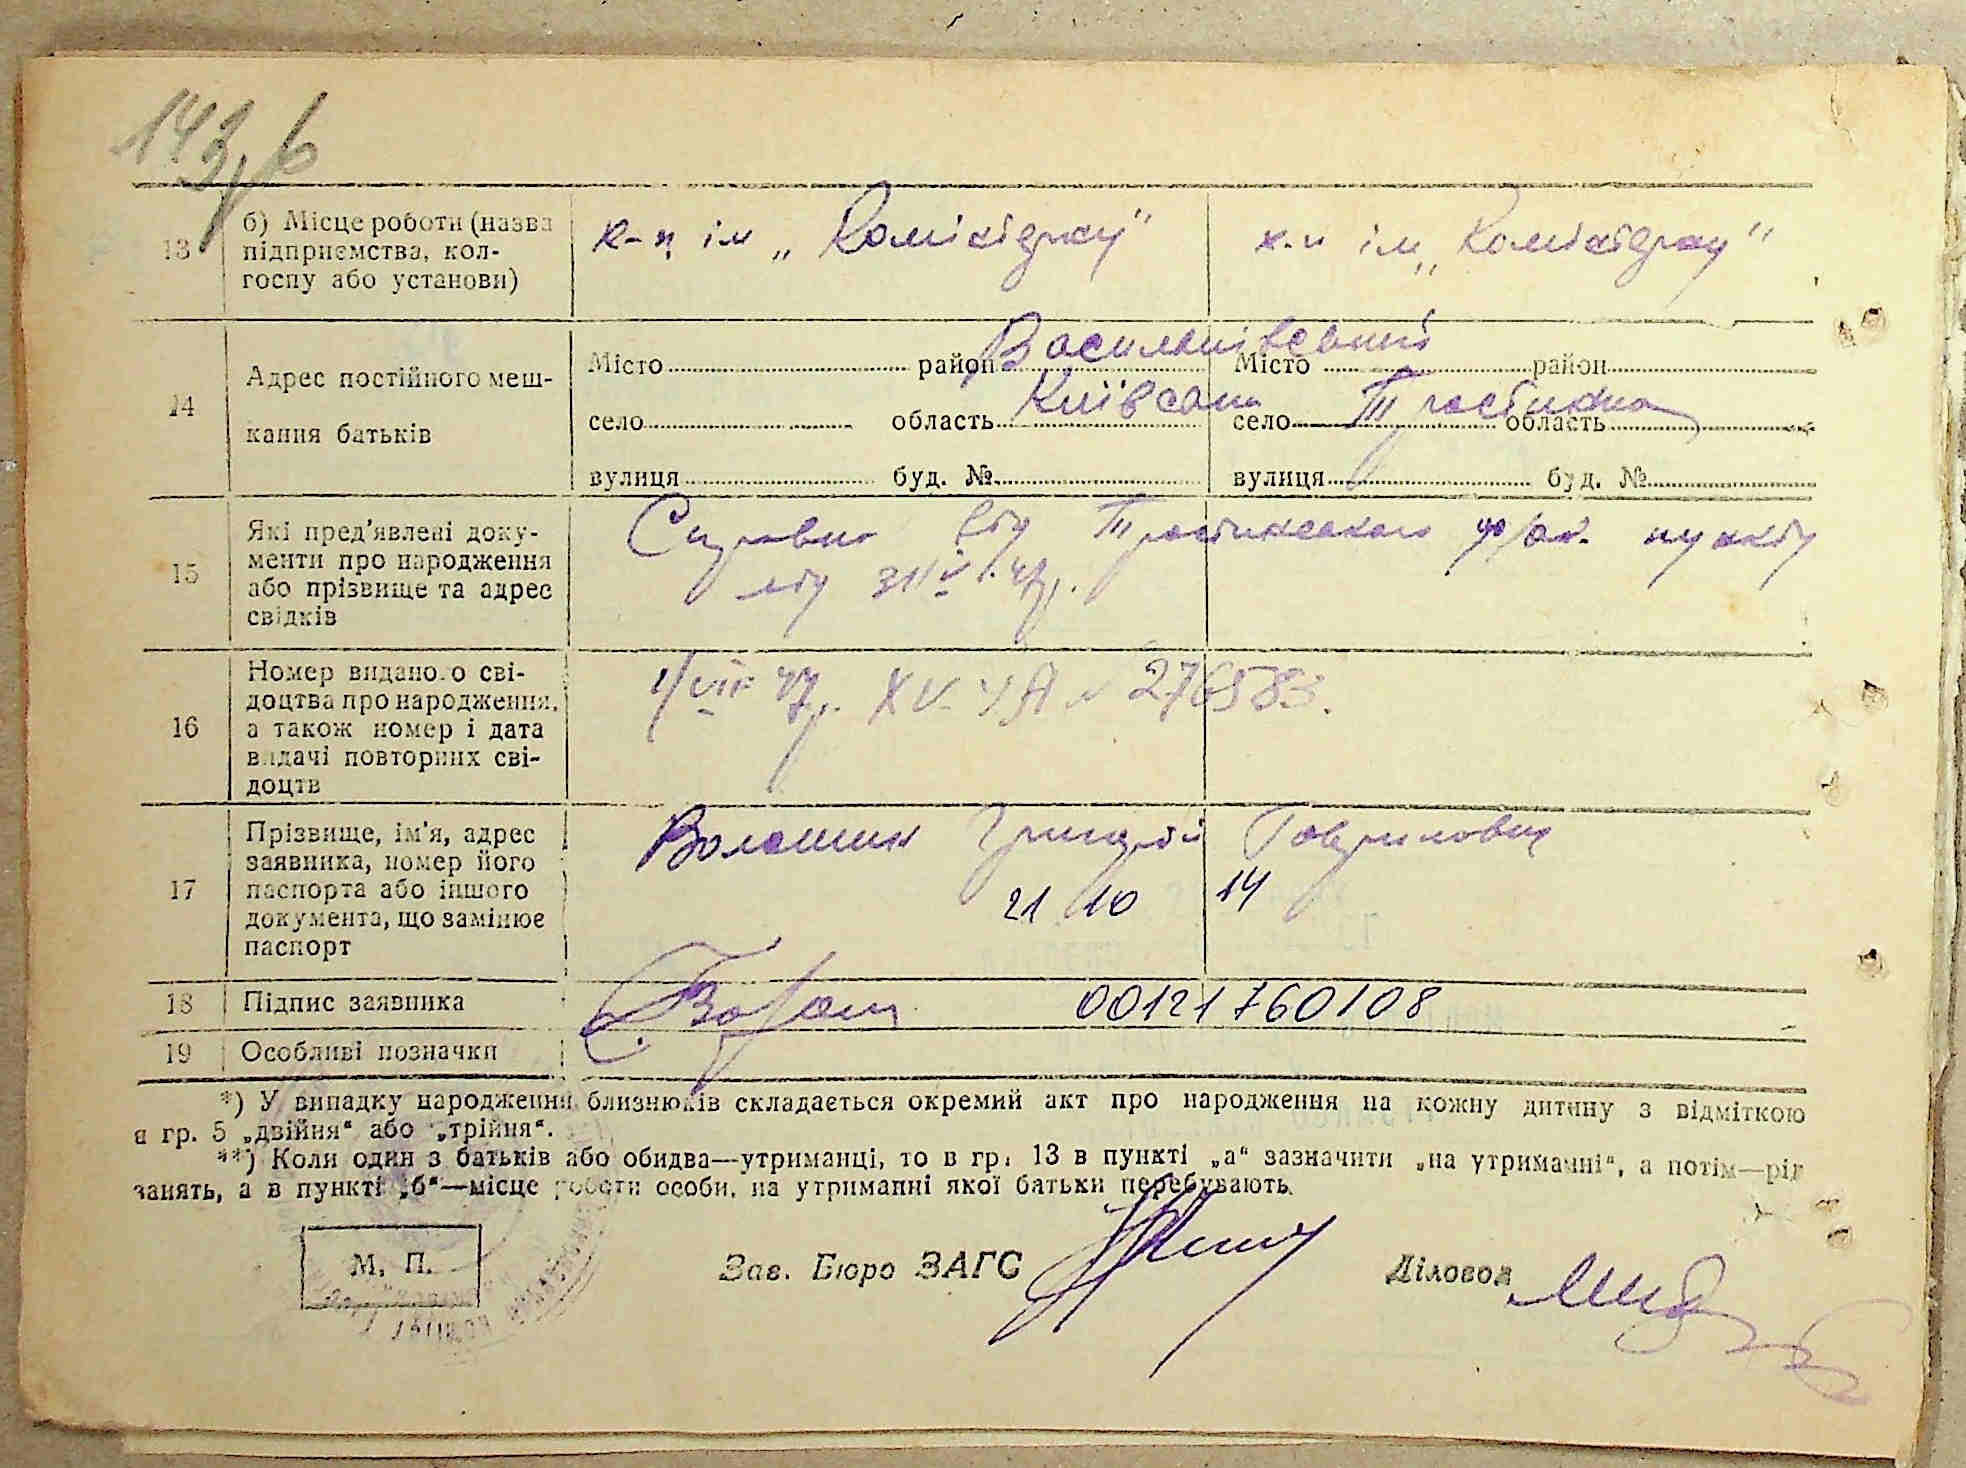 143
13 б) Місце роботи (назва підприємства, колгоспу або установи)
к-п ім „
к-п ім „
14 Адрес постійного мешкання батьків
Місто район Васильківський Місто район
село область Київська село Тростинка область
вулиця буд. № вулиця буд. №
15 Які пред'явлені документи про народження або прізвище та адрес свідків
Справка від Тростинського пункту
від 47р.
16 Номер виданого свідоцтва про народження, а також номер і дата видачі повторних свідоцтв
1/VIII 47р. XV-УА № 276583.
17 Прізвище, ім'я, адрес заявника, номер його паспорта або іншого документа, що замінює паспорт
Волошин Григорій Гаврилович
21 10 14
18 Підпис заявника
00121760108
19 Особливі позначки
*) У випадку народження близнюків складається окремий акт про народження на кожну дитину з відміткою
в гр. 5 „двійня“ або „трійня“.
**) Коли один з батьків або обидва—утриманці, то в гр. 13 в пункті „а“ зазначити „на утриманні“, а потім—рід
занять, а в пункті „б“—місце роботи особи, на утриманні якої батьки перебувають.
М. П.
Зав. Бюро ЗАГС
Діловод